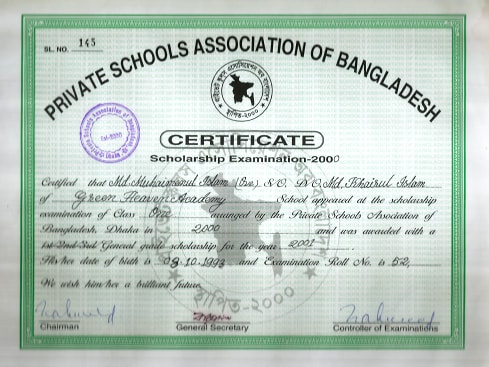 SL. NO. 145
PRIVATE SCHOOLS ASSOCIATION OF BANGLADESH
স্থাপিত-২০০০
Private Schools Association of Bangladesh
Est-2000
CERTIFICATE
Scholarship Examination-2000
Certified that Md. Muhaimenul Islam S/O. D/O. Md. Khairul Islam
of Green Heaven Academy School appeared at the scholarship
examination of Class One arranged by the Private Schools Association of
Bangladesh, Dhaka in 2000 and was awarded with a
1st 2nd 3rd General grade scholarship for the year 2001
His/her date of birth is 03-10-1993 and Examination Roll No. is 52,
We wish him/her a brilliant future.
স্থাপিত-২০০০
Chairman
General Secretary
Controller of Examinations